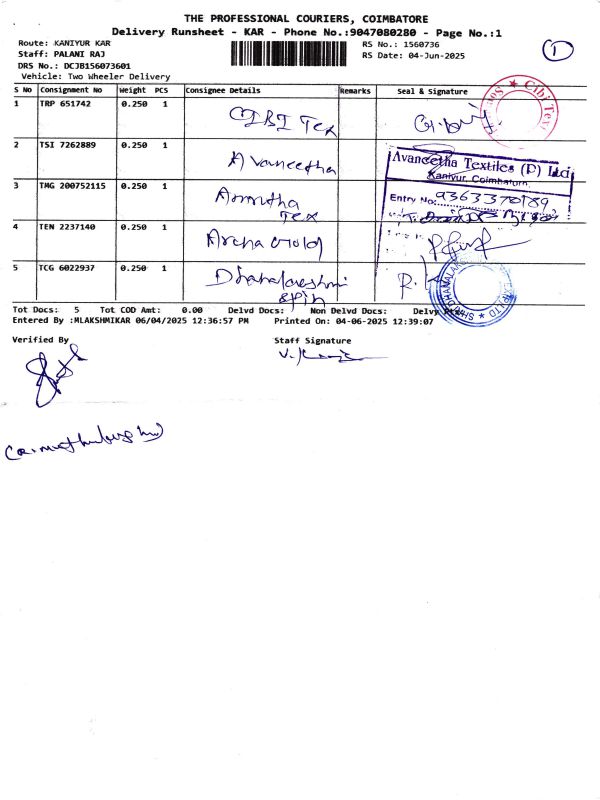 THE PROFESSIONAL COURIERS, COIMBATORE
Delivery Runsheet - KAR - Phone No.:9047080280 - Page No.:1
Route: KANIYUR KAR
RS No.: 1560736
1
Staff: PALANI RAJ
RS Date: 04-Jun-2025
DRS No.: DCJB156073601
Vehicle: Two Wheeler Delivery
S No Consignment No Weight PCS Consignee Details Remarks Seal & Signature
1 TRP 651742 0.250 1 CIBI Tex
Cibi Tex
2 TSI 7262889 0.250 1 Avaneetha
Avaneetha Textiles (P) Ltd
Kaniyur, Coimbatore
3 TMG 200752115 0.250 1 Amrutha
Tex
Entry No: 9363370189
4 TEN 2237140 0.250 1 Archa
5 TCG 6022937 0.250 1 Dhanalakshmi
Spin
Tot Docs: 5 Tot COD Amt: 0.00 Delvd Docs: Non Delvd Docs: Delvy
Entered By :MLAKSHMIKAR 06/04/2025 12:36:57 PM Printed On: 04-06-2025 12:39:07
Verified By
Staff Signature